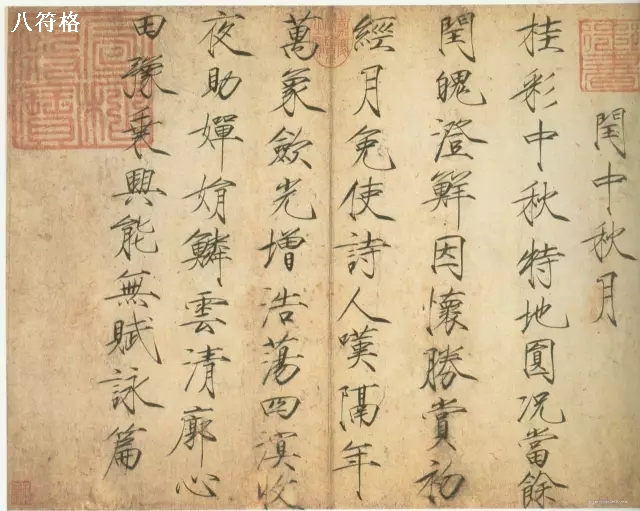 八符格
閏中秋月
桂彩中秋特地圓况當餘
閏魄澄鮮因懷勝賞初
經月免使詩人嘆隔年
萬象歛光增浩蕩四溟收
夜助嬋娟鱗雲清廓心
田豫乘興能無賦詠篇